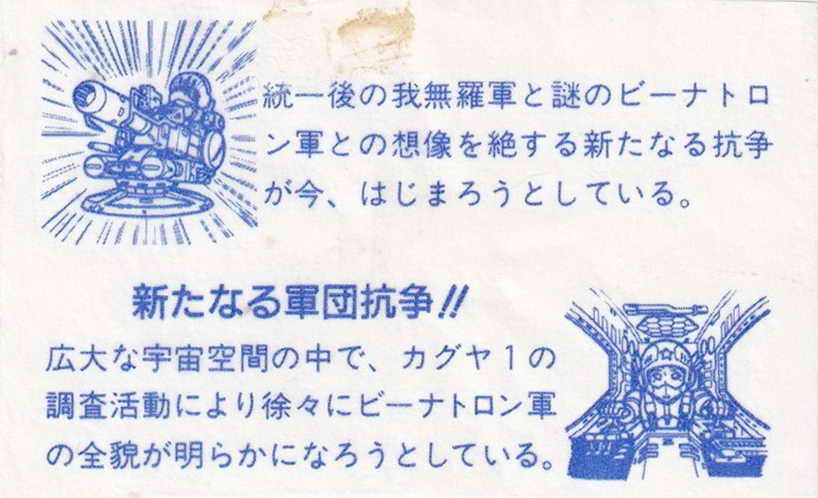 統一後の我無羅軍と謎のビーナトロ
ン軍との想像を絶する新たなる抗争
が今、はじまろうとしている。
新たなる軍団抗争!!
広大な宇宙空間の中で、カグヤ1の
調査活動により徐々にビーナトロン軍
の全貌が明らかになろうとしている。